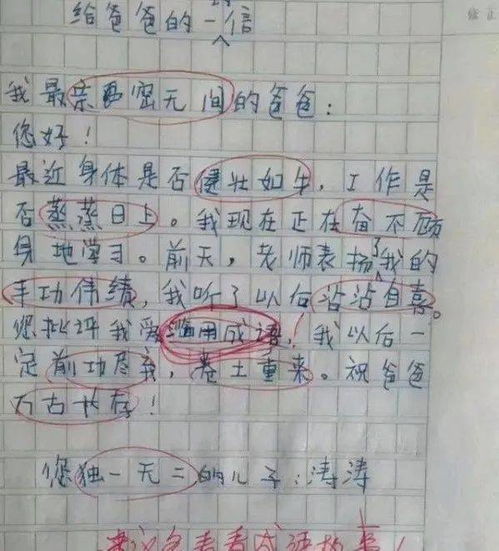 给爸爸的一封信
我最亲密无间的爸爸：
您好！
最近身体是否健壮如牛，工作是
否蒸蒸日上。我现在正在奋不顾
身地学习。前天，老师表扬了我的
丰功伟绩，我听了以后沾沾自喜。
您批评我爱滥用成语！我以后一
定前功尽弃，卷土重来。祝爸爸
万古长存！
您独一无二的儿子：涛涛